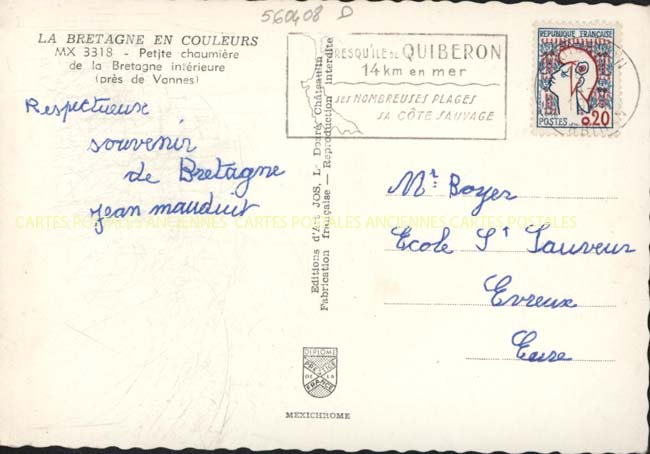 560408 D
LA BRETAGNE EN COULEURS
MX 3318 - Petite chaumière
de la Bretagne intérieure
(près de Vannes)
Respectueux
souvenir
de Bretagne
Jean mauduit
PRESQU'ILE DE QUIBERON
14 km en mer
SES NOMBREUSES PLAGES
SA CÔTE SAUVAGE
REPUBLIQUE FRANÇAISE
POSTES 0,20
Editions d'Art JOS, Le Doaré, Châteaulin
Fabrication française — Reproduction interdite
Mr. Boyer
Ecole St Sauveur
Evreux
Eure
CARTES POSTALES ANCIENNES CARTES POSTALES
DIPLOME
PRESTIGE
DE LA
FRANCE
MEXICHROME